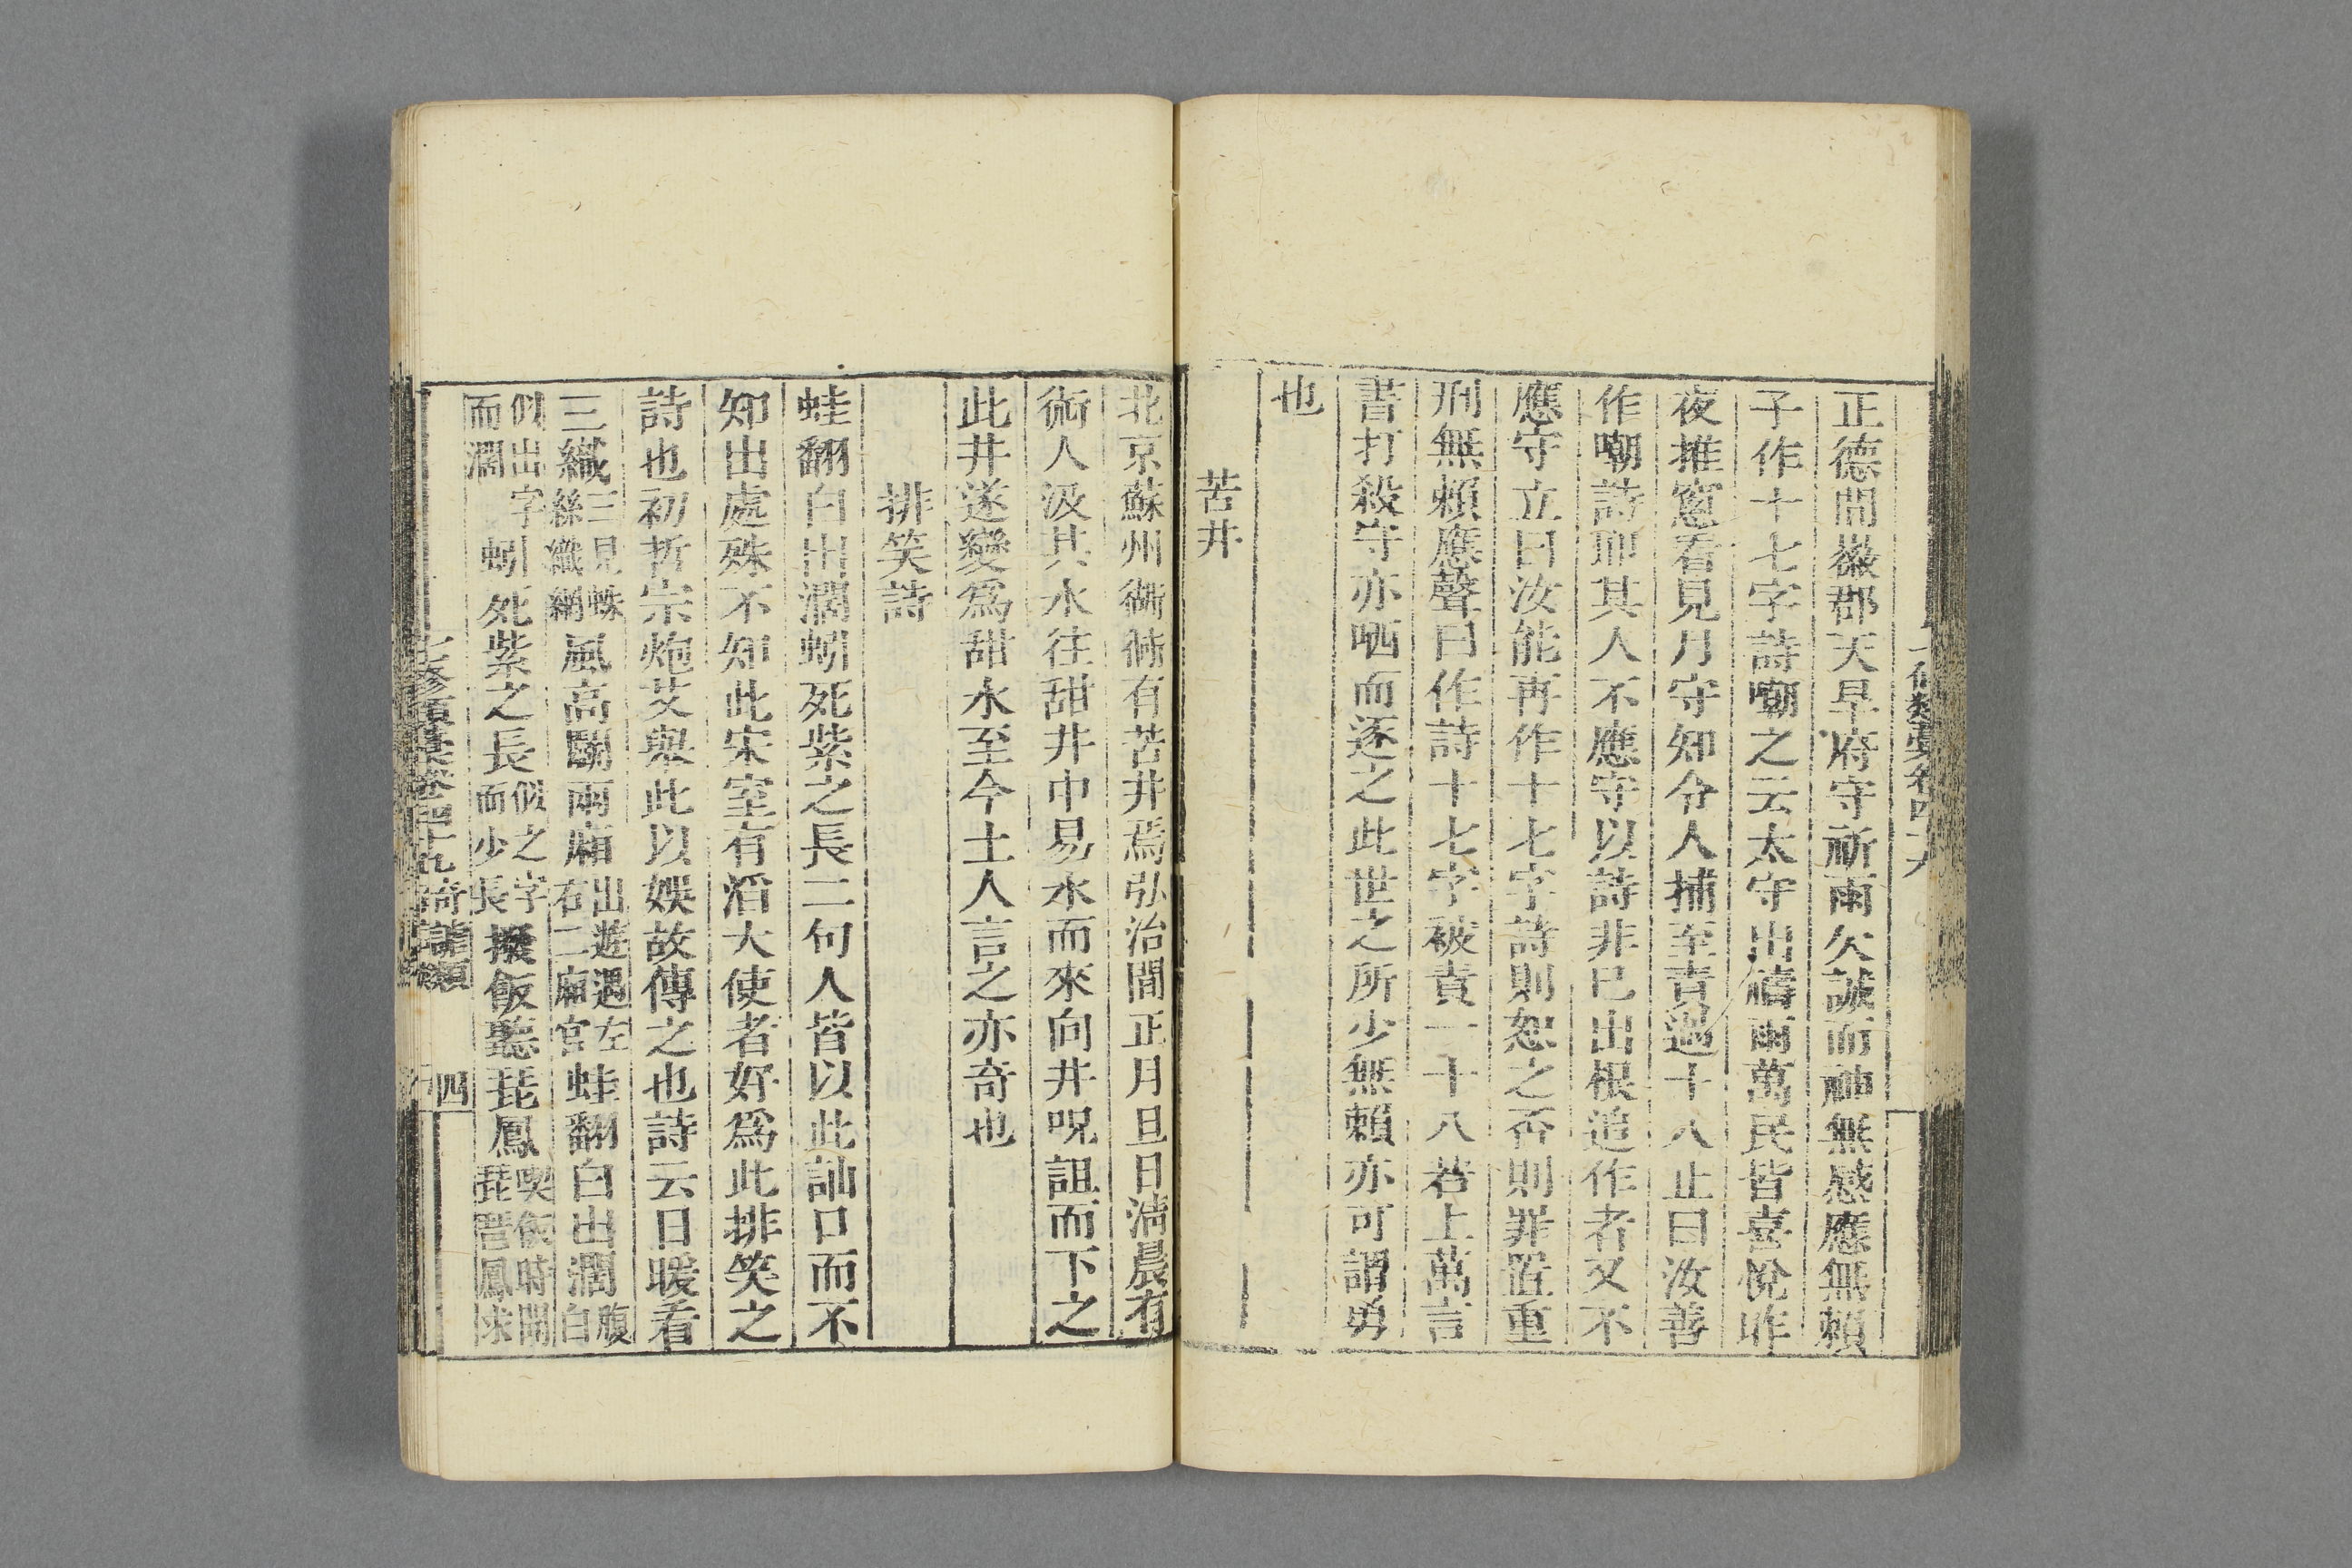 正德間徽郡天旱府守祈雨欠誠而神無感應無賴
子作十七字詩嘲之云太守出禱雨萬民皆喜悅昨
夜推窓看見月守知令人捕至責過十八止曰汝善
作嘲詩耶其人不應守以詩非己出根追作者又不
應守立曰汝能再作十七字詩則恕之否則罪置重
刑無賴應聲曰作詩十七字被責一十八若上萬言
書打殺守亦哂而逐之此世之所少無賴亦可謂勇
也
苦井
北京蘇州衚衕有苦井焉弘治間正月旦日淸晨有
術人汲其水往甜井中易水而來向井呪詛而下之
此井遂變爲甜水至今土人言之亦奇也
排笑詩
蛙翻白出濶蚓死紫之長二句人皆以此訕口而不
知出處殊不知此宋室有滔大使者好爲此排笑之
詩也初哲宗炮艾與此以娛故傳之也詩云日暖看
三織三見蛛絲織網風高鬭兩廂出遊遇左右二廂官蛙翻白出濶腹白
似出字而濶蚓死紫之長似之字而少長撥飯聽琵鳳喫飯時聞琵琶鳳求
七修類藁卷四十九 奇謔類 四